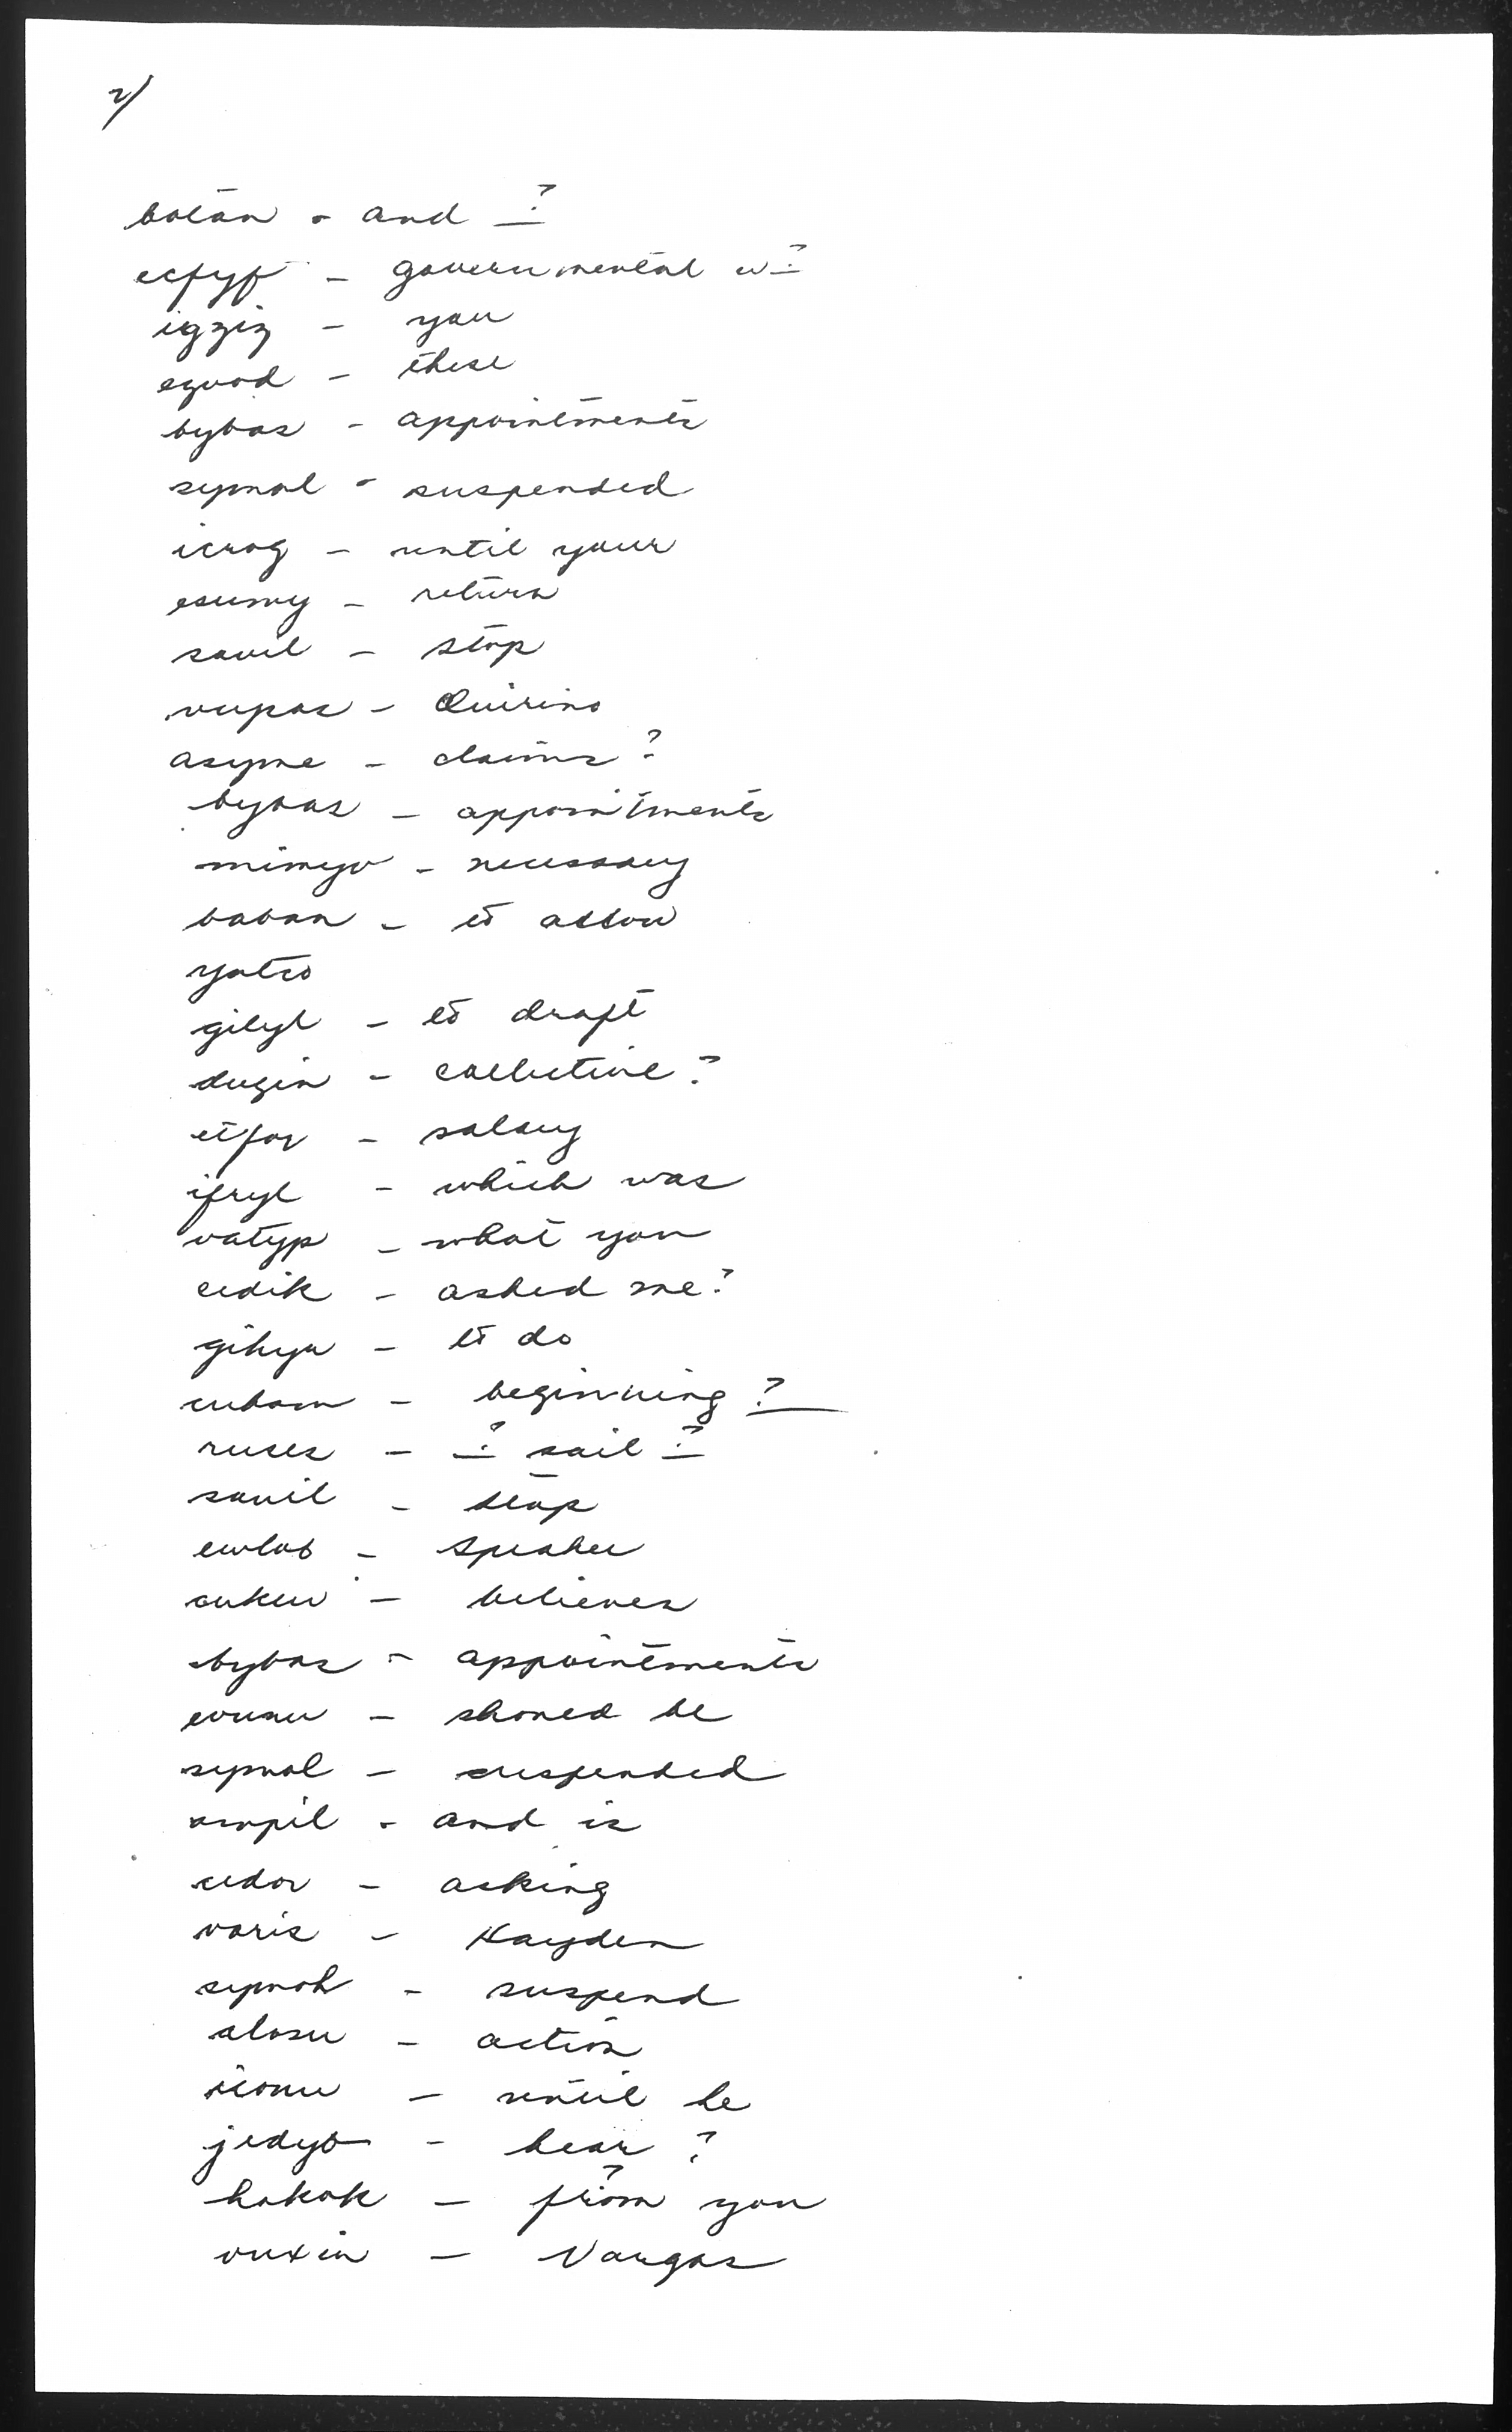 2/
batan - and ?
ecfyf - governmental w?
igziz - you
eqvod - these
bybas - appointments
sypnal - suspended
icrog - until your
esumy - return
savil - stop
vupas - Quirino
asyme - claims ?
bybas - appointments
mimyv - necessary
baban - to allow
yatso
gilyl - to draft
duzin - collective ?
etfor - salary
ifryl - which was
vatyp - what you
eedik - asked me ?
gihyu - to do
cubam - beginning ?
ruses - ? sail ?
savil - stop
ewlob - Speaker
aukew - believes
bybas - appointments
evunu - should be
sypnal - suspended
ampil - and is
eedor - asking
varis - Hayden
sypnah - suspend
alosu - action
iconu - until he
jedyb - hear ?
hakok - from you
vuxin - Vargas